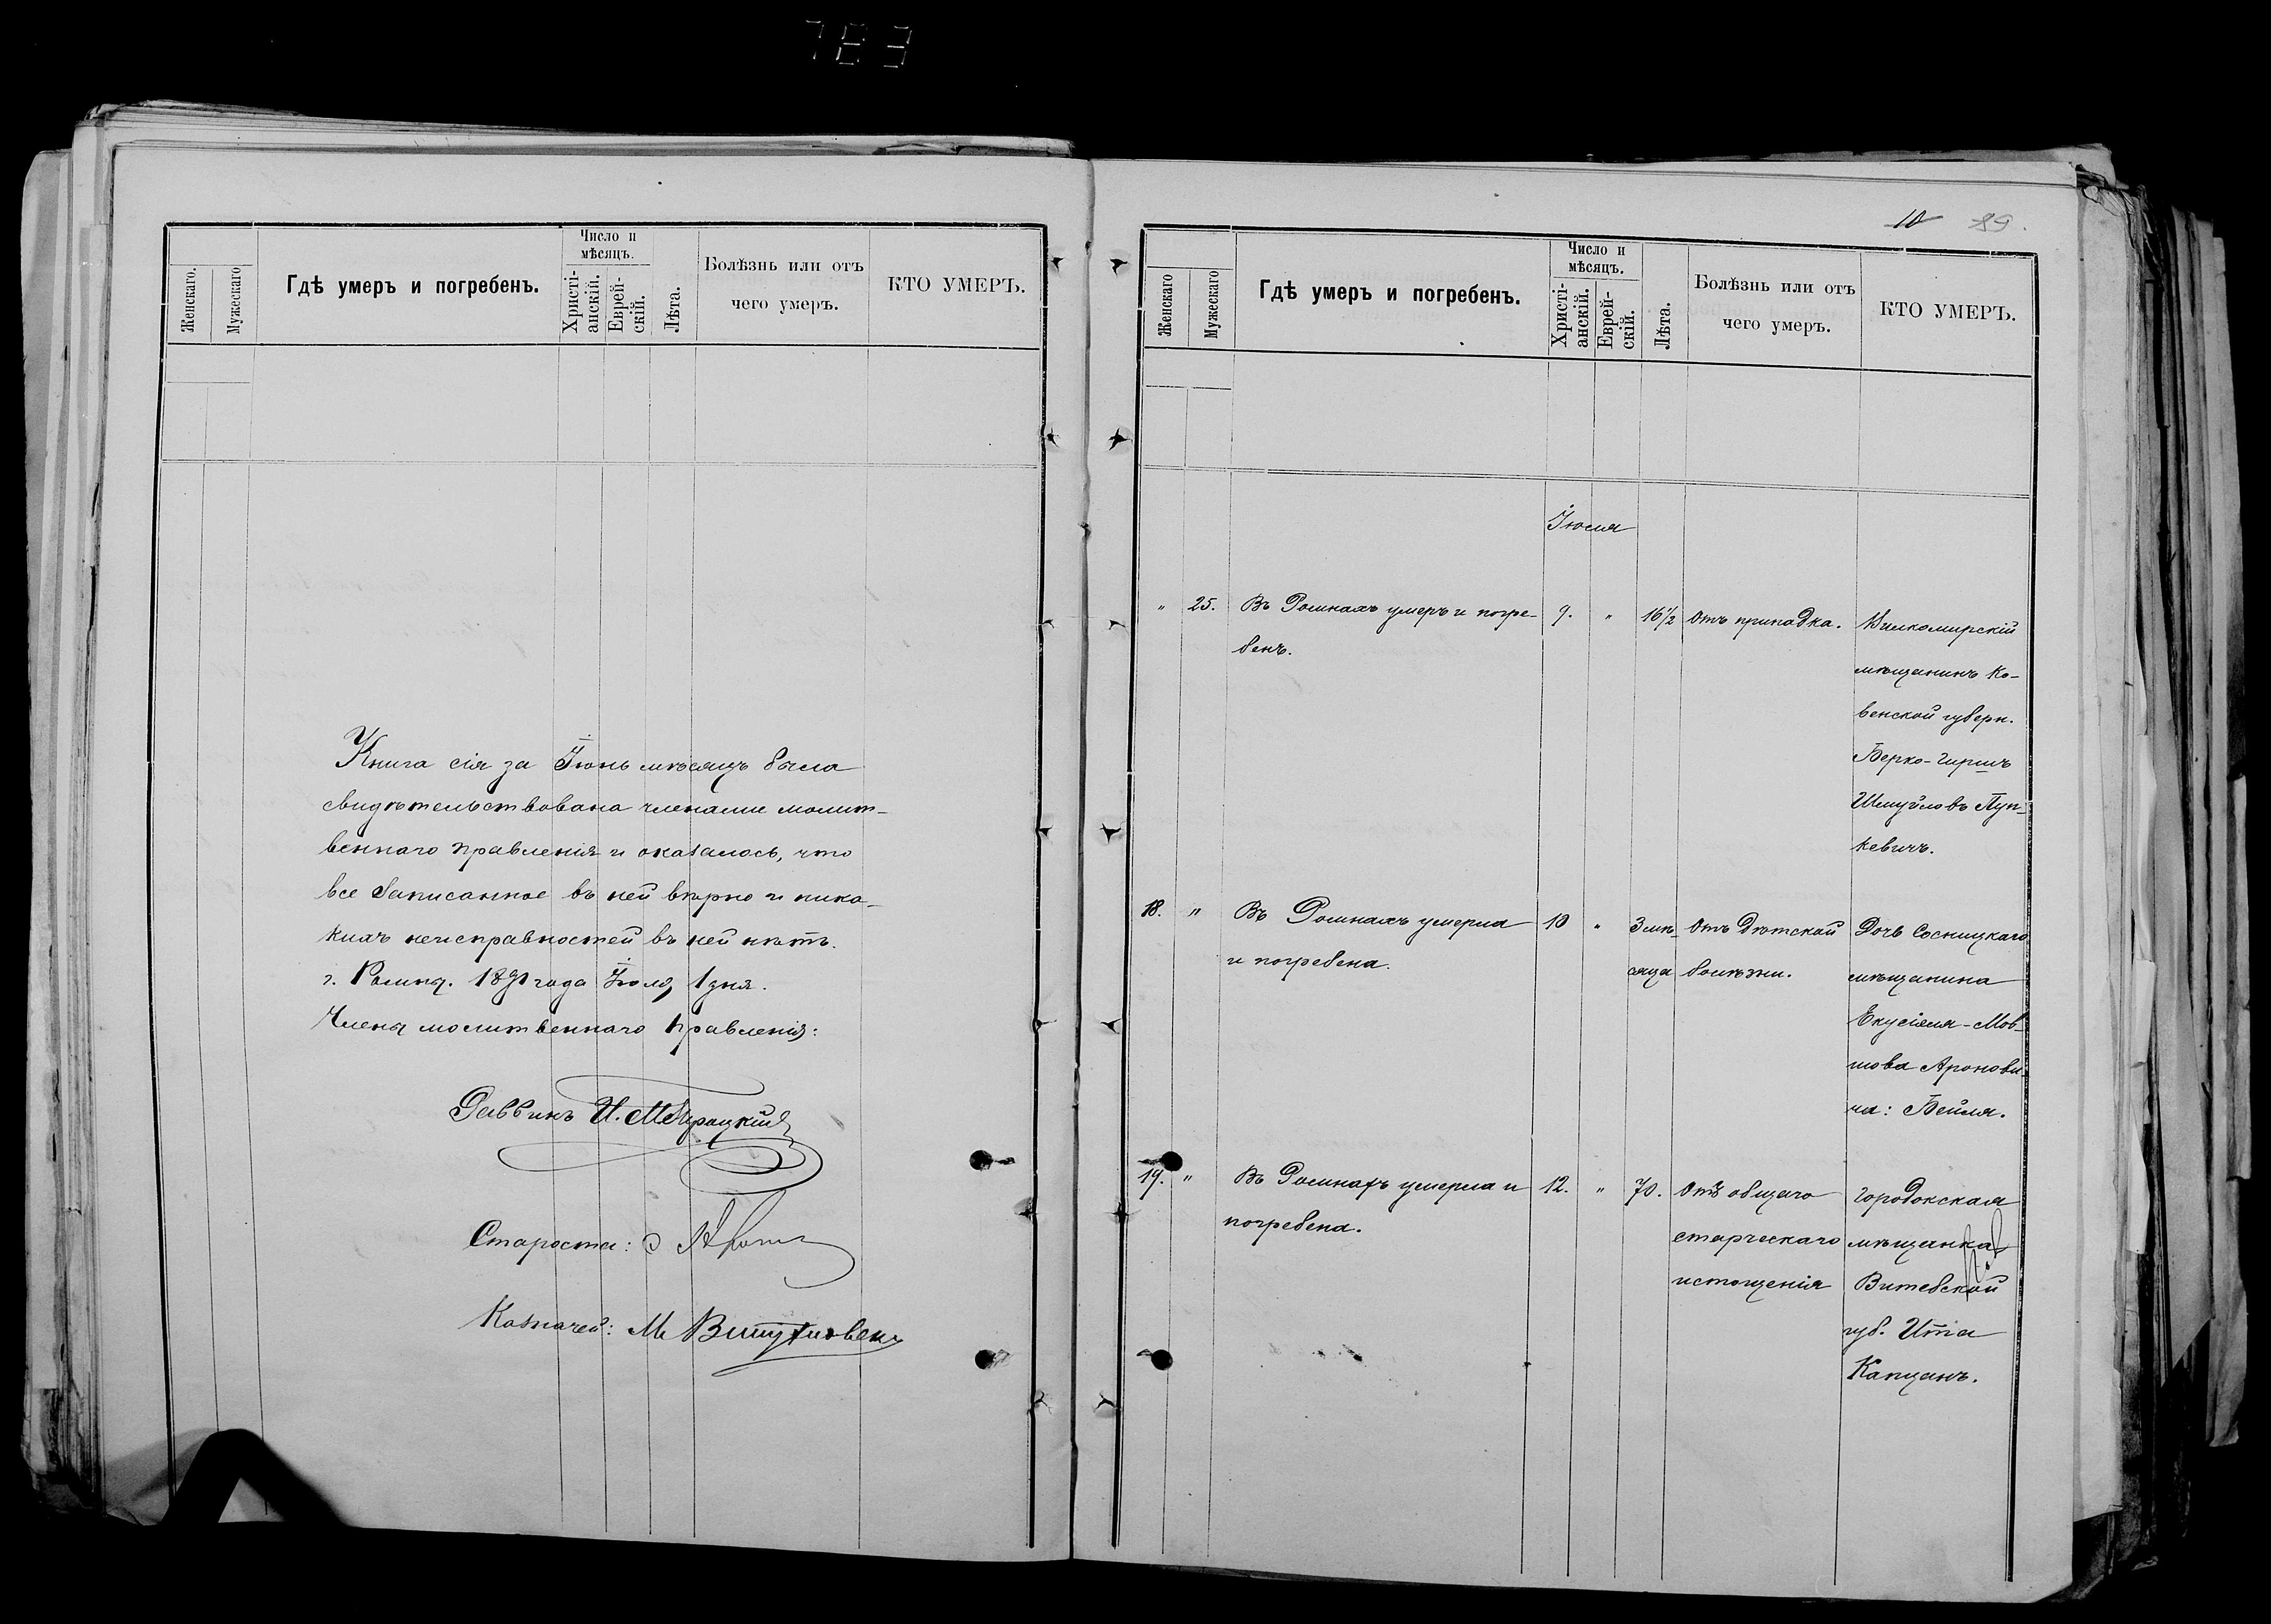 783
Женскаго.
Мужескаго
Гдѣ умеръ и погребенъ.
Число и
мѣсяцъ.
Христі-
анскій.
Еврей-
скій.
Лѣта.
Болѣзнь или отъ
чего умеръ.
КТО УМЕРЪ.
Книга сія за Іюнь мѣсяцъ была
свидѣтельствована членами молит-
веннаго правленія и оказалось, что
все записанное въ ней вѣрно и ника-
кихъ неисправностей въ ней нѣтъ.
г. Ромны. 1891 года Іюля 1 дня.
Члены молитвеннаго правленія:
Раввинъ И.
Староста:
Казначей: М
10 89.
Женскаго
Мужескаго
Гдѣ умеръ и погребенъ.
Число и
мѣсяцъ.
Христі-
анскій.
Еврей-
скій.
Лѣта.
Болѣзнь или отъ
чего умеръ.
КТО УМЕРЪ.
Іюля
" 25. Въ Ромнахъ умеръ и погре-
бенъ.
9. " 16 1/2 Отъ припадка.
Вилкомирскій
мѣщанинъ Ко-
венской губерн.
Берко-Гиршъ
Шмуйловъ Пуп-
кевичъ.
18. " Въ Ромнахъ умерла
и погребена.
10 " 3 мѣ-
сяца
Отъ дѣтской
болѣзни.
Дочь Сосницкаго
мѣщанина
Екусіеля-Мов-
шова Аронови-
ча: Бейля.
19. " Въ Ромнахъ умерла и
погребена.
12. " 70. Отъ общаго
старческаго
истощенія
Городокская
мѣщанка
Витебской
губ. Ита
Капцанъ.